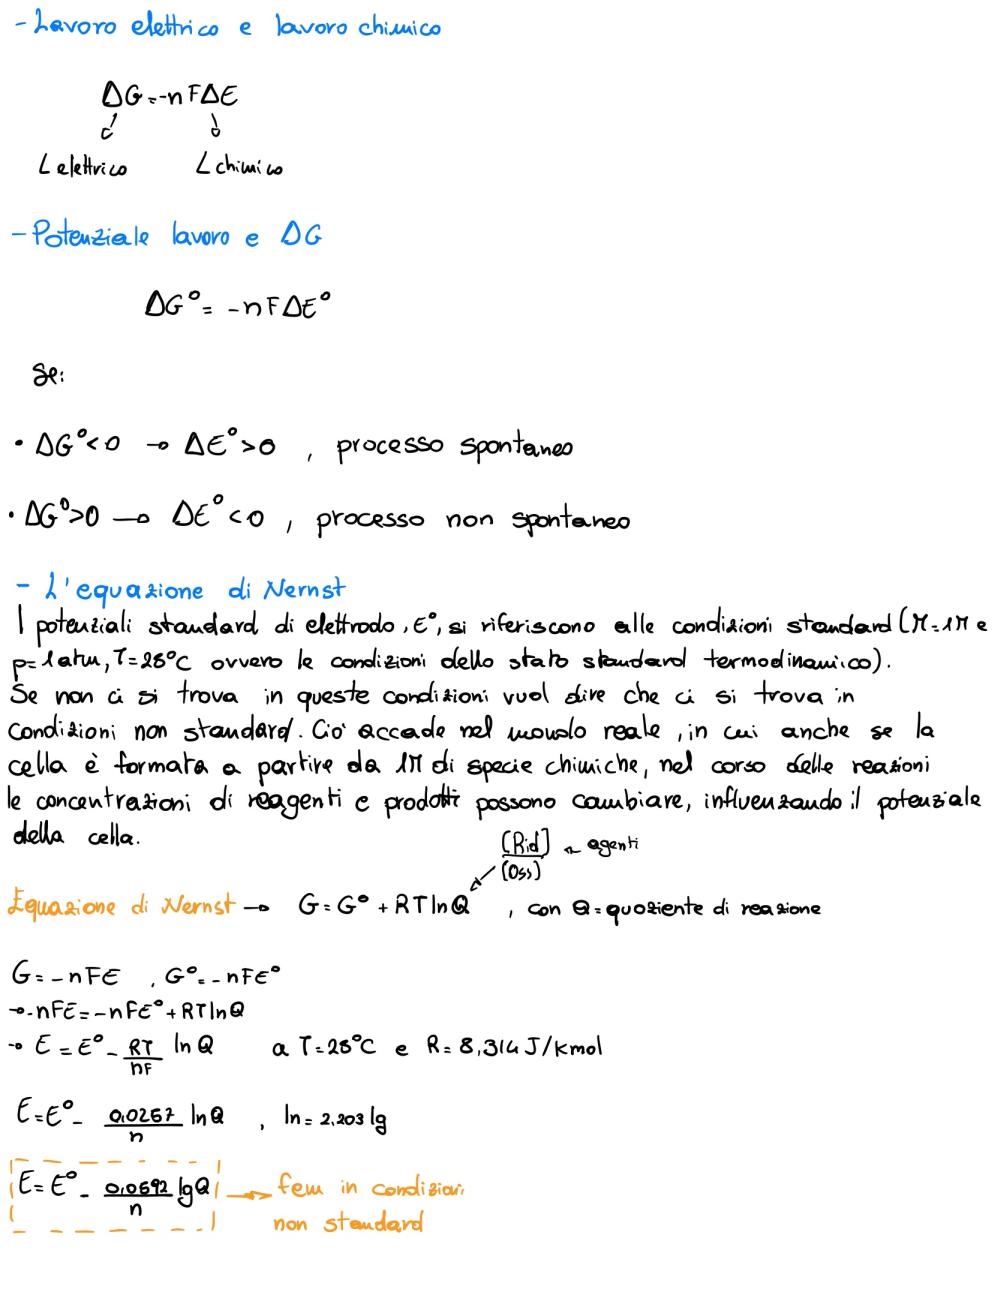 - Lavoro elettrico e lavoro chimico
ΔG=-nFΔE
L elettrico L chimico
- Potenziale lavoro e ΔG
ΔG°= -nFΔE°
Se:
• ΔG°<0 → ΔE°>0 , processo spontaneo
• ΔG°>0 → ΔE°<0 , processo non spontaneo
- L'equazione di Nernst
I potenziali standard di elettrodo, E°, si riferiscono alle condizioni standard (M=1M e
p=1atm, T=25°C ovvero le condizioni dello stato standard termodinamico).
Se non ci si trova in queste condizioni vuol dire che ci si trova in
condizioni non standard. Ciò accade nel mondo reale, in cui anche se la
cella è formata a partire da 1M di specie chimiche, nel corso delle reazioni
le concentrazioni di reagenti e prodotti possono cambiare, influenzando il potenziale
della cella.
[Rid] agenti
(Oss)
Equazione di Nernst → G=G°+RTlnQ , con Q=quoziente di reazione
G=-nFE , G°=-nFE°
→-nFE=-nFE°+RTlnQ
→ E=E°-RT/nF lnQ a T=25°C e R=8,314J/Kmol
E=E°- 0,0257/n lnQ , ln=2,203lg
E=E°- 0,0592/n lgQ → fem in condizioni
non standard